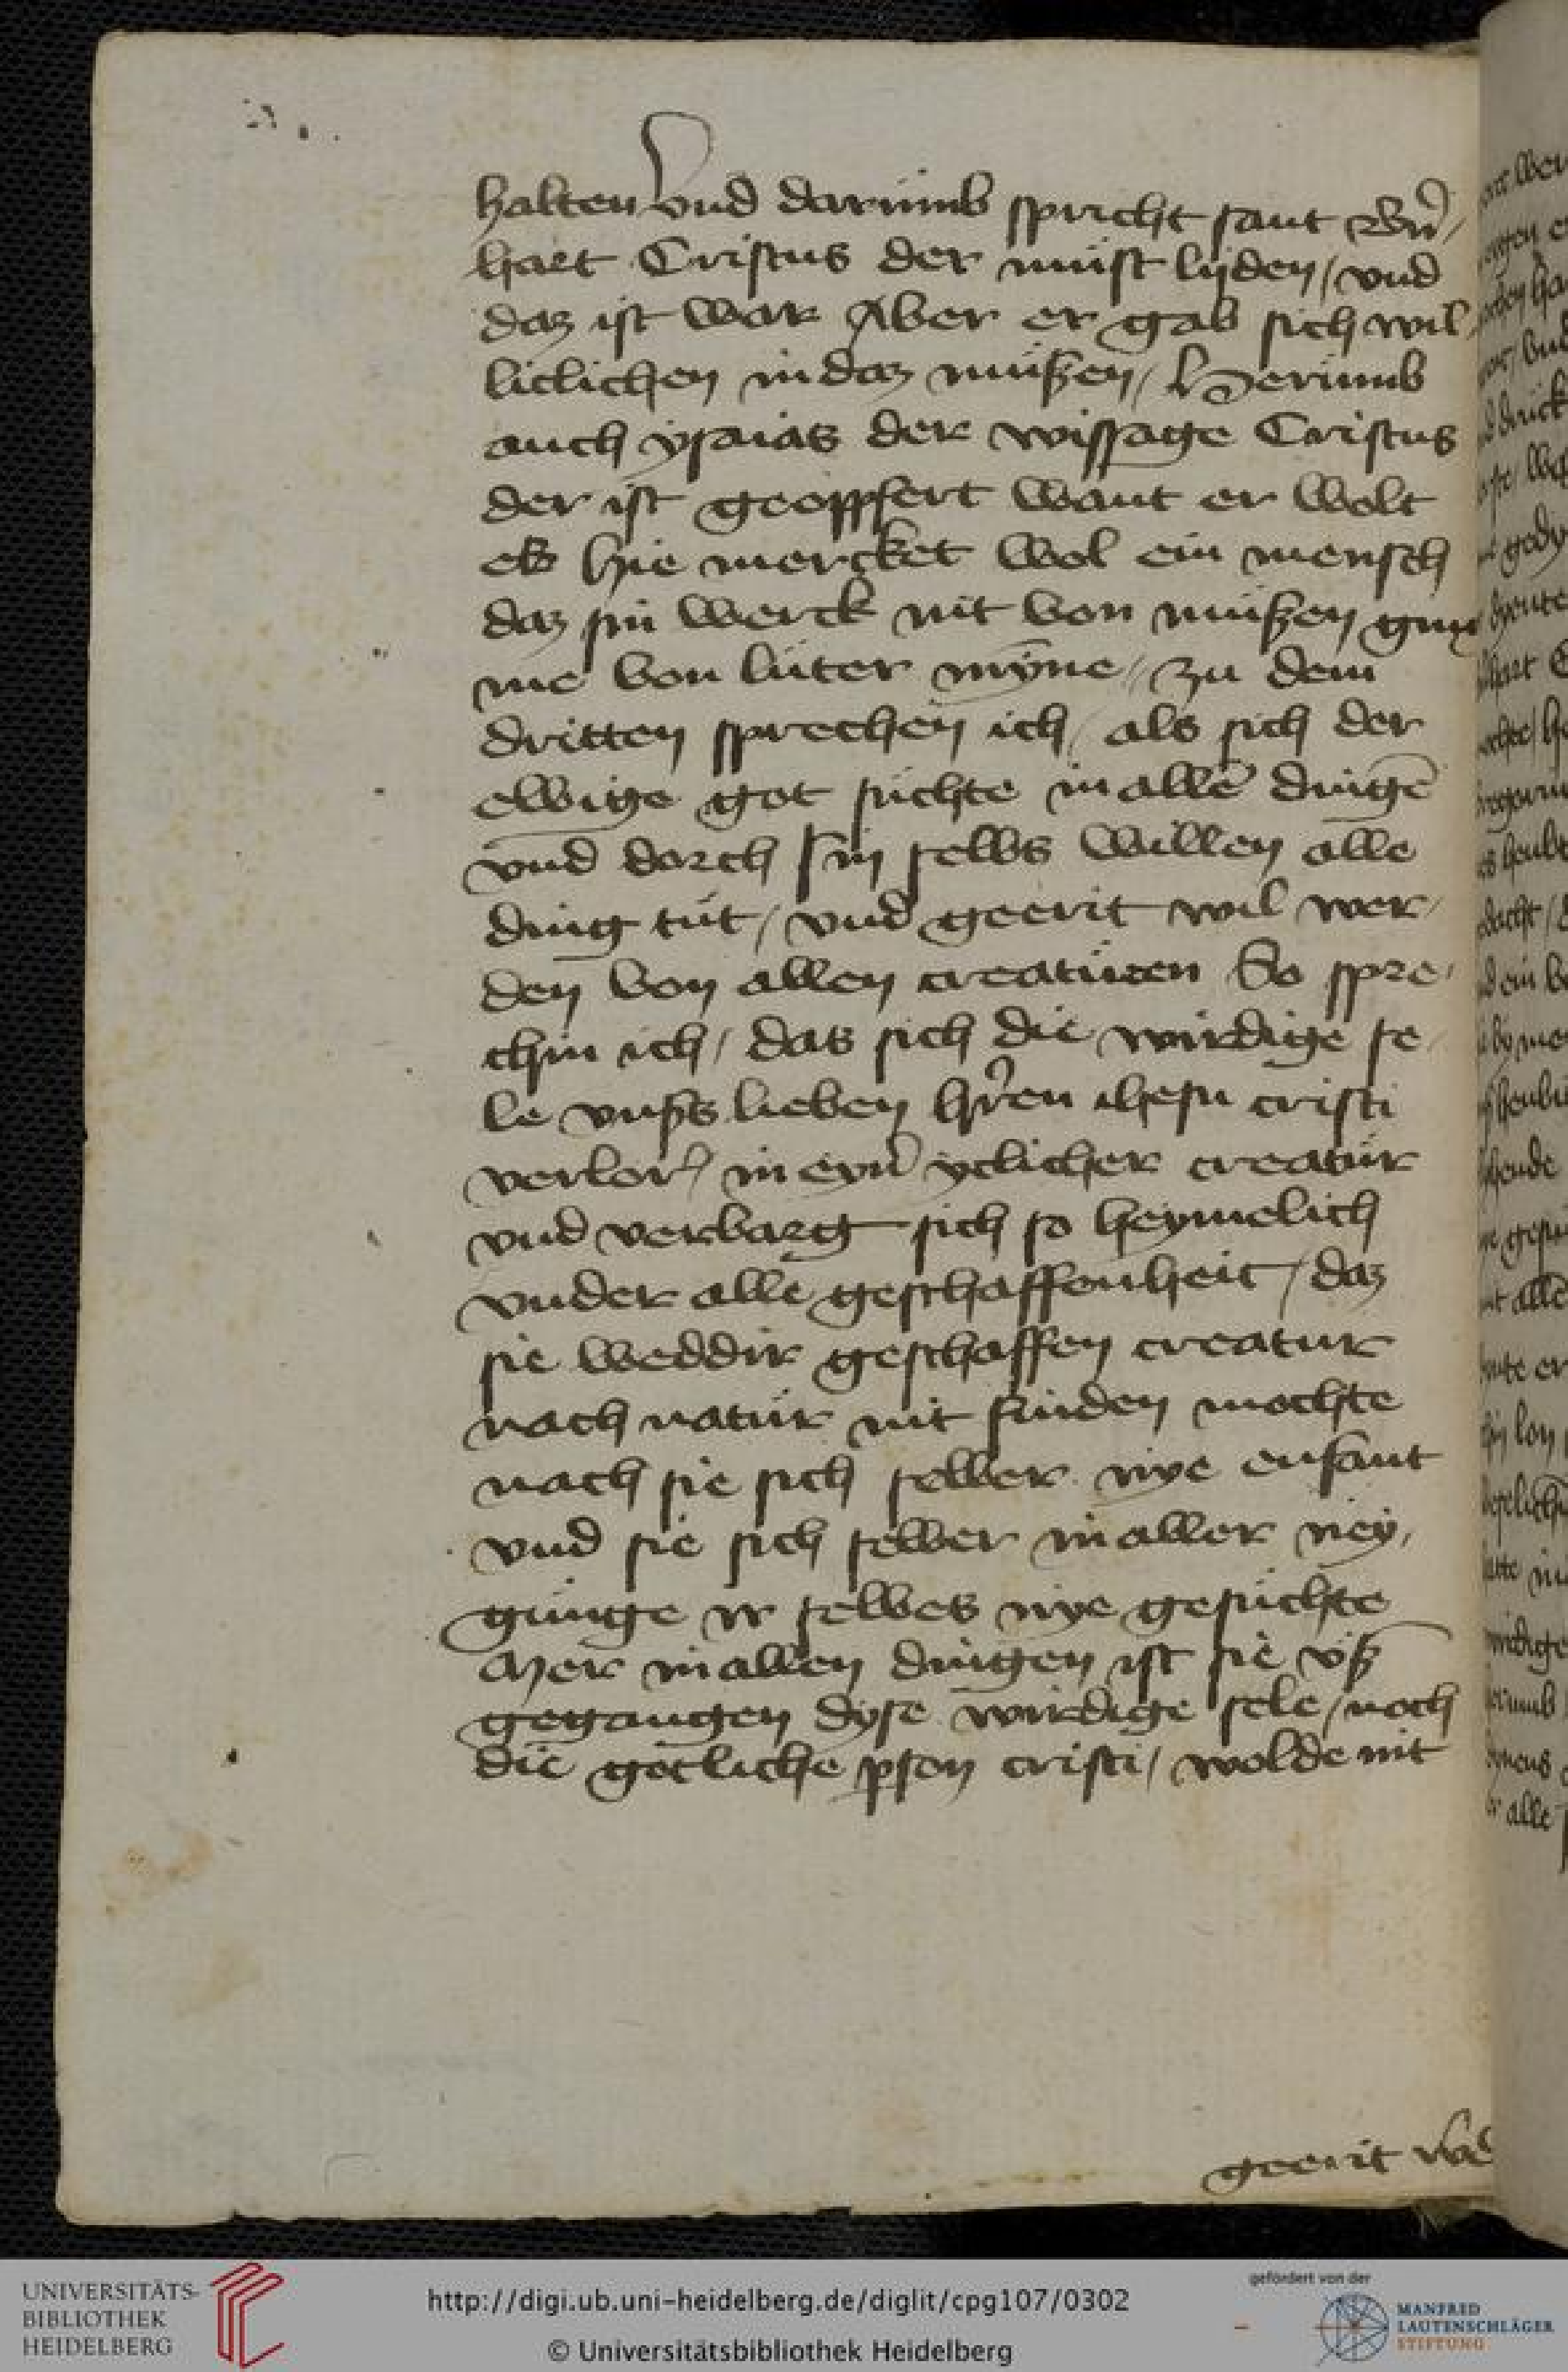 halten vnd darümb spricht sant Bn̄
hart Cristus der müst lijden / vnd
daz ist war Aber er gab sich wil
liclichen in daz müßen / Herumb
auch ysaias der wissage Cristus
der ist geoppfert want er wolt
eß hie mercket wol ein mensch
daz sin werck nit von müßen
me von lüter mÿne // zu dem
dritten sprechen ich / als sich der
ewige got süchte in allē dingē
vnd dorch sin selbs willen alle
ding tüt / vnd geerit wil wer
den von allen creatüren So spre
chin ich / das sich die wirdige se
le vnßs lieben hr̄en ihesu cristi
verlor in eyn̄ yclicher creatür
vnd verbarg sich so heymelich
vnder alle geschaffenheit / daz
sie weddir geschaffen creatur
nach natür nit finden mochte
nach sie sich selber nye enfant
vnd sie sich selber in aller ney
günge ir selbes nye gesüchte
Mer in allen dingen ist sie vß
gegangen dyse wirdige sele / noch
die gotliche pson cristi / wolde nit
geerit
UNIVERSITÄTS-
BIBLIOTHEK
HEIDELBERG
http://digi.ub.uni-heidelberg.de/diglit/cpg107/0302
© Universitätsbibliothek Heidelberg
gefördert von der
MANFRED
LAUTENSCHLÄGER
STIFTUNG